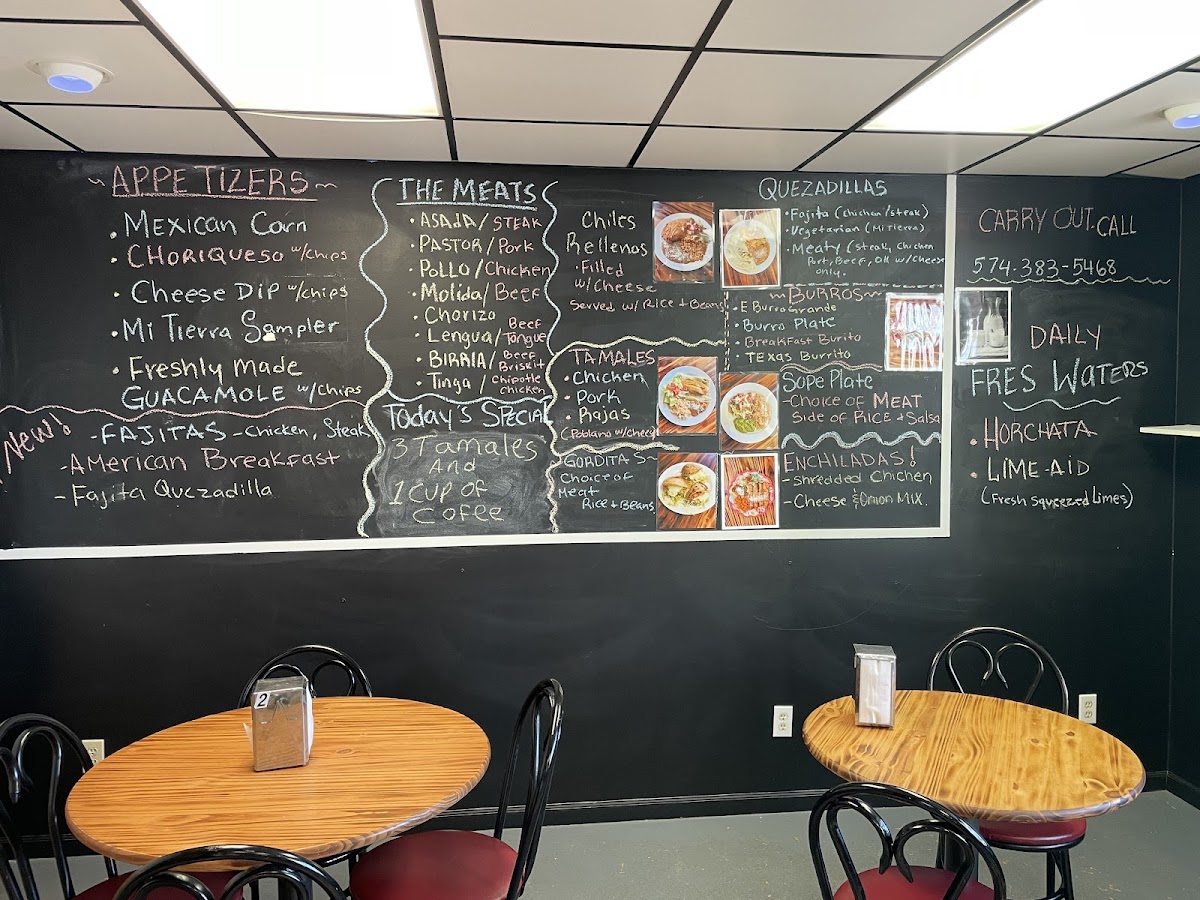 ~ APPETIZERS ~
· MEXICAN CORN
· CHORIQUESO w/chips
· CHEESE DIP w/chips
· MI TIERRA SAMPLER
· FRESHLY MADE
GUACAMOLE w/chips
New!
- FAJITAS - Chicken, Steak
- AMERICAN BREAKFAST
- Fajita Quezadilla
THE MEATS
· ASADA / STEAK
· PASTOR / Pork
· POLLO / Chicken
· Molida / Beef
· Chorizo
· Lengua / Beef Tongue
· BIRRIA / Beef Briskit
· Tinga / Chipotle chicken
Today's Special
3 Tamales
AND
1 CUP OF
COFEE
Chiles
Rellenos
· Filled
w/ Cheese
Served w/ Rice + Beans
TAMALES
· Chicken
· Pork
· Rajas
(Poblano w/cheese)
GORDITAS -
Choice of
Meat
Rice + Beans
QUEZADILLAS
· Fajita (chichan/steak)
· Vegetarian (Mi Tierra)
· Meaty (steak, chicken
Port, Beef, OR w/Cheese
only.
~ BURROS ~
· E Burro Grande
· Burro Plate
· Breakfast Burito
· TExas Burrito
Sope Plate
- Choice of MEAT
Side of RICE + Salsa
ENCHILADAS!
- shredded Chichen
- Cheese & Onion MIX.
CARRY OUT CALL
574-383-5468
DAILY
FRES WATERS
· HORCHATA
· LIME-AID
(Fresh squeezed Limes)
2